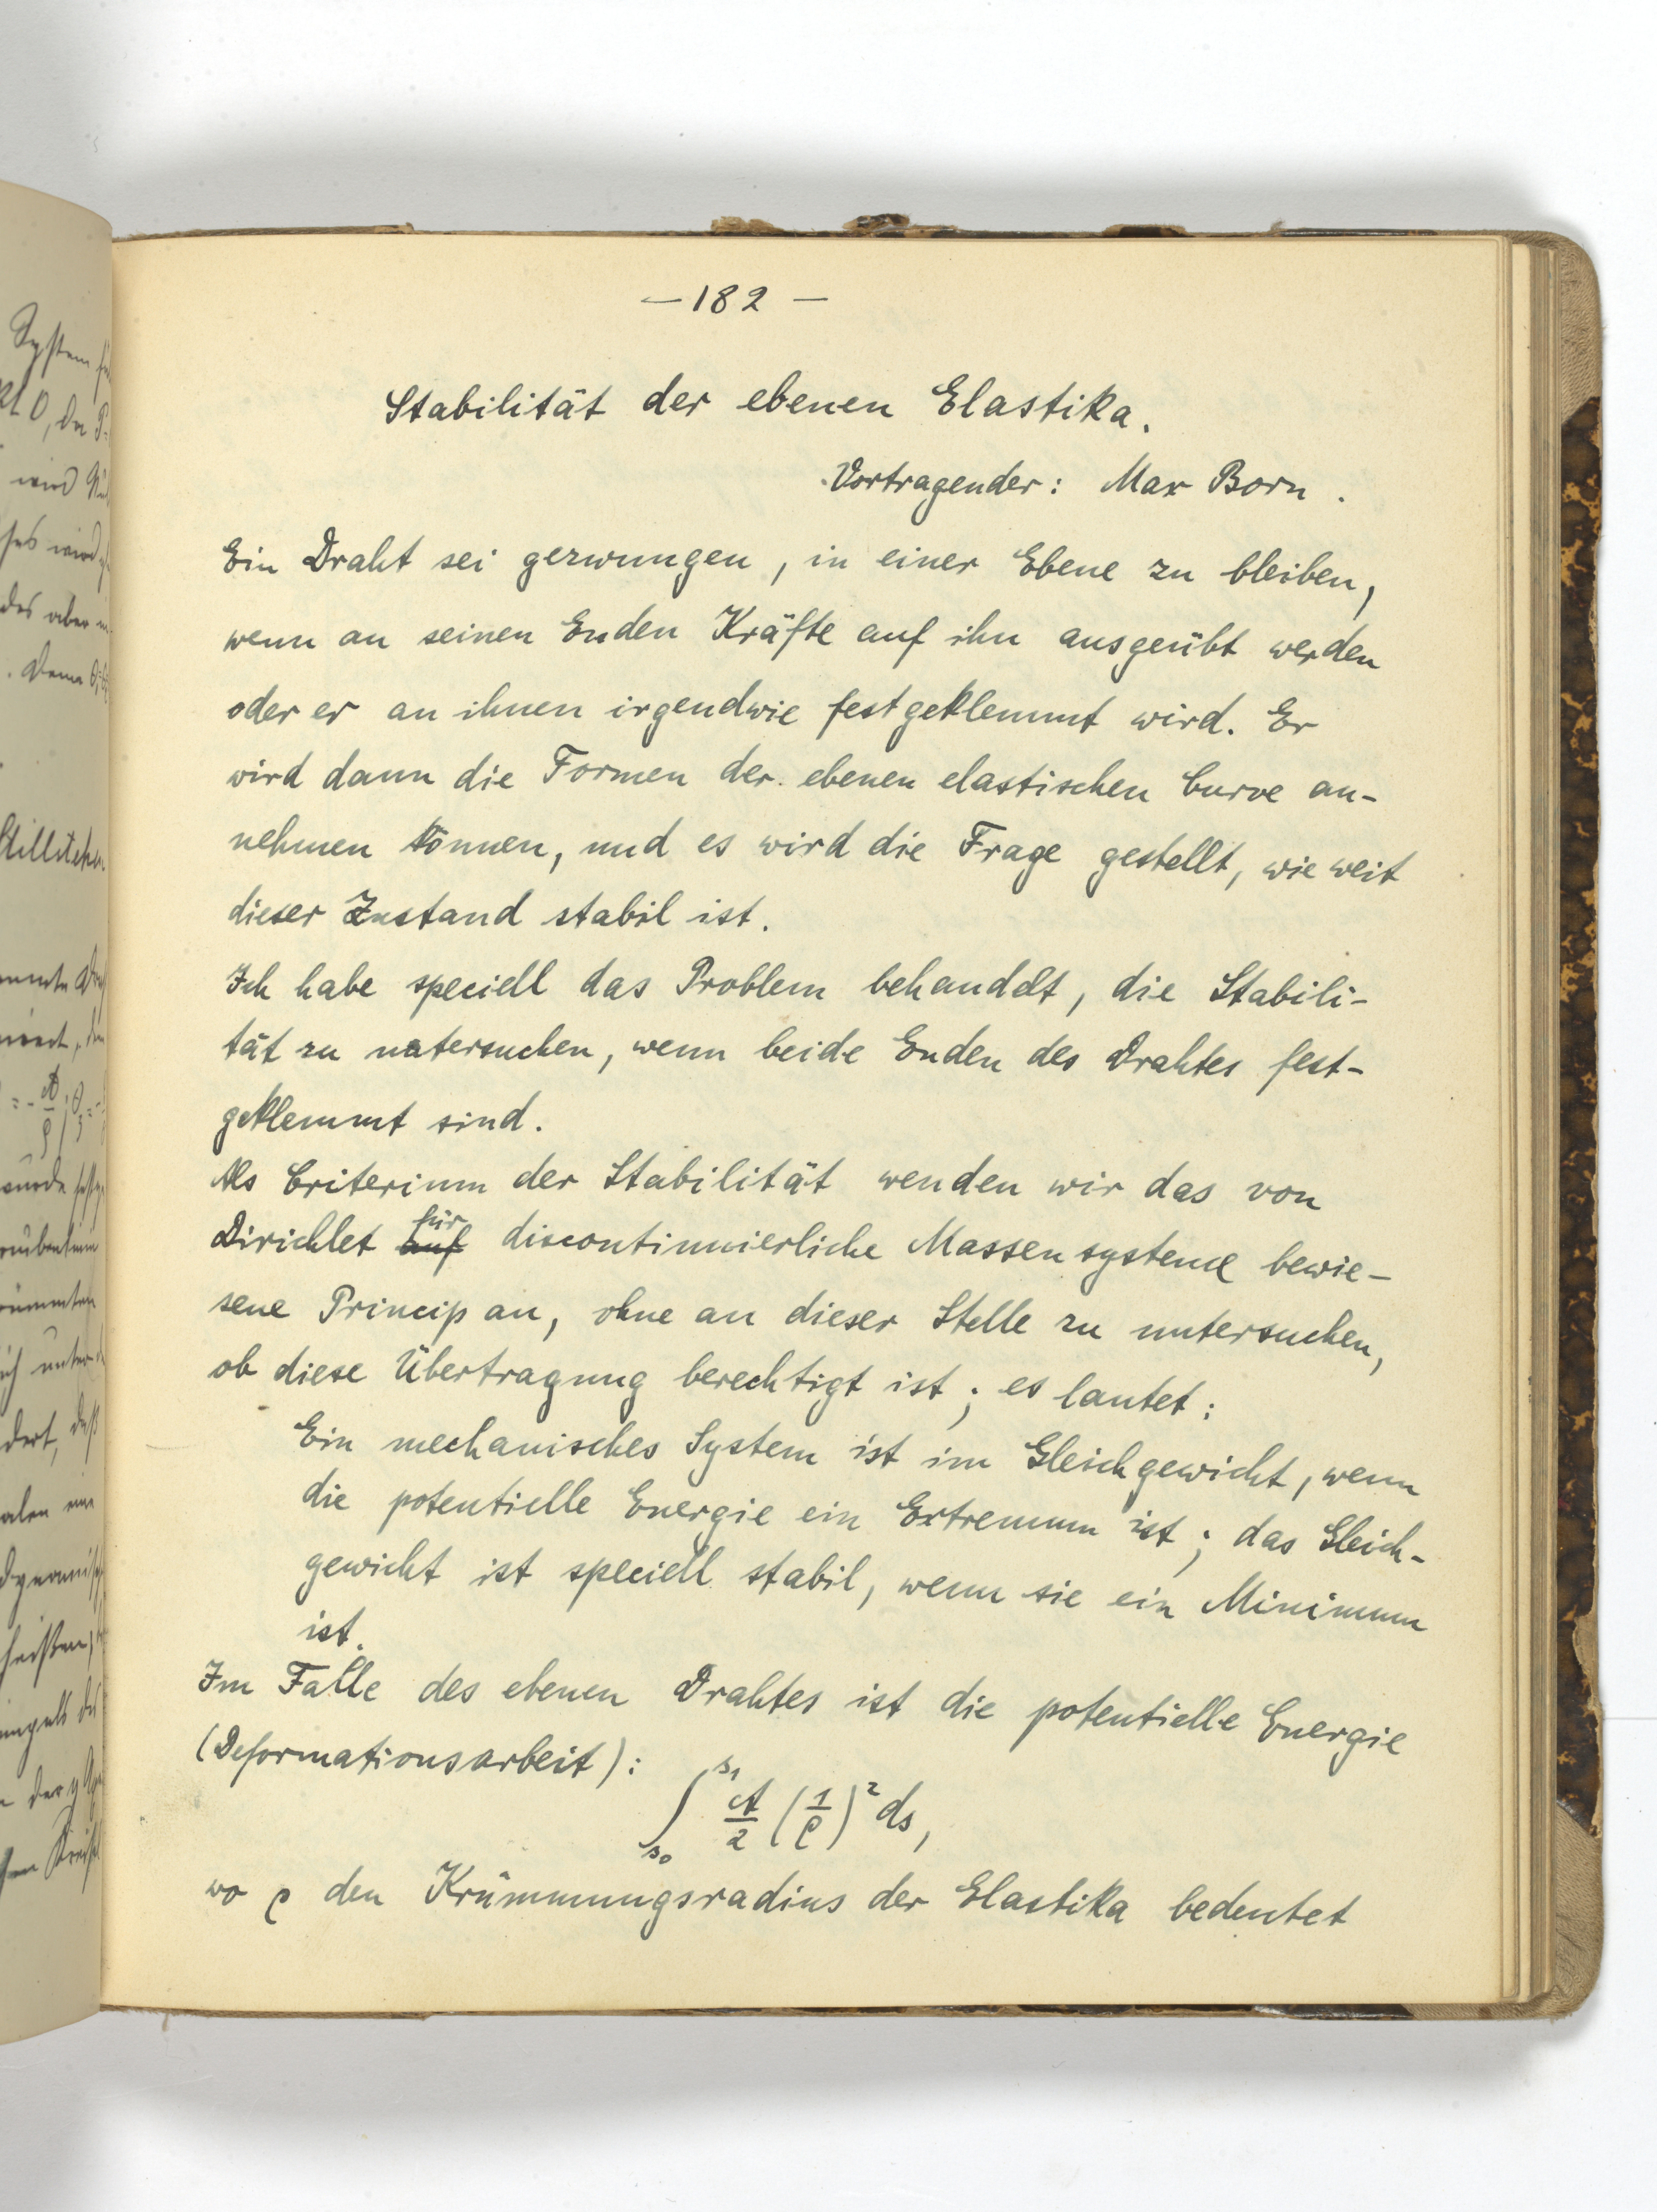 — 182 —
Stabilität der ebenen Elastika.
Vortragender: Max Born.
Ein Draht sei gezwungen, in einer Ebene zu bleiben,
wenn an seinen Enden Kräfte auf ihn ausgeübt werden
oder er an ihnen irgendwie festgeklemmt wird. Er
wird dann die Formen der ebenen elastischen Curve an-
nehmen können, und es wird die Frage gestellt, wie weit
dieser Zustand stabil ist.
Ich habe speciell das Problem behandelt, die Stabili-
tät zu untersuchen, wenn beide Enden des Drahtes fest-
geklemmt sind.
Als Criterium der Stabilität wenden wir das von
Dirichlet für discontinuierliche Massensysteme bewie-
sene Princip an, ohne an dieser Stelle zu untersuchen,
ob diese Übertragung berechtigt ist; es lautet:
Ein mechanisches System ist im Gleichgewicht, wenn
die potentielle Energie ein Extremum ist; das Gleich-
gewicht ist speciell stabil, wenn sie ein Minimum
ist.
Im Falle des ebenen Drahtes ist die potentielle Energie
(Deformationsarbeit):
∫_{s_0}^{s_1} A/2 (1/ρ)² ds,
wo ρ den Krümmungsradius der Elastika bedeutet